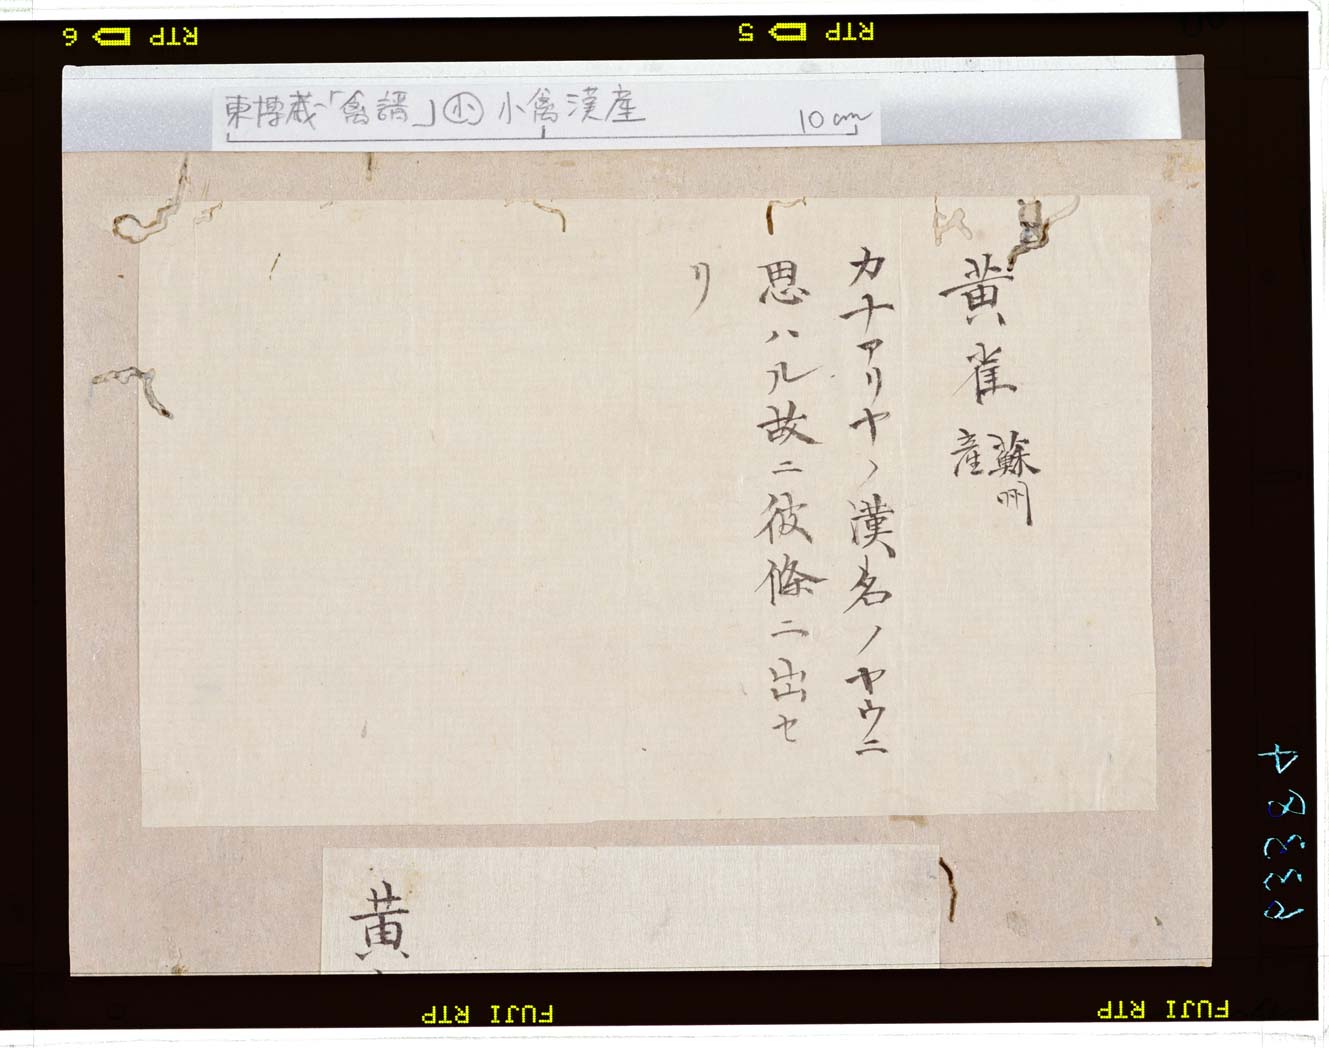 RTP 6
RTP 5
東博蔵「禽譜」㊉ 小禽漢産
10cm
黄雀 蘇州
産
カナアリヤノ漢名ノヤウニ
思ハル故ニ彼條ニ出セ
リ
黄
FUJI RTP
FUJI RTP